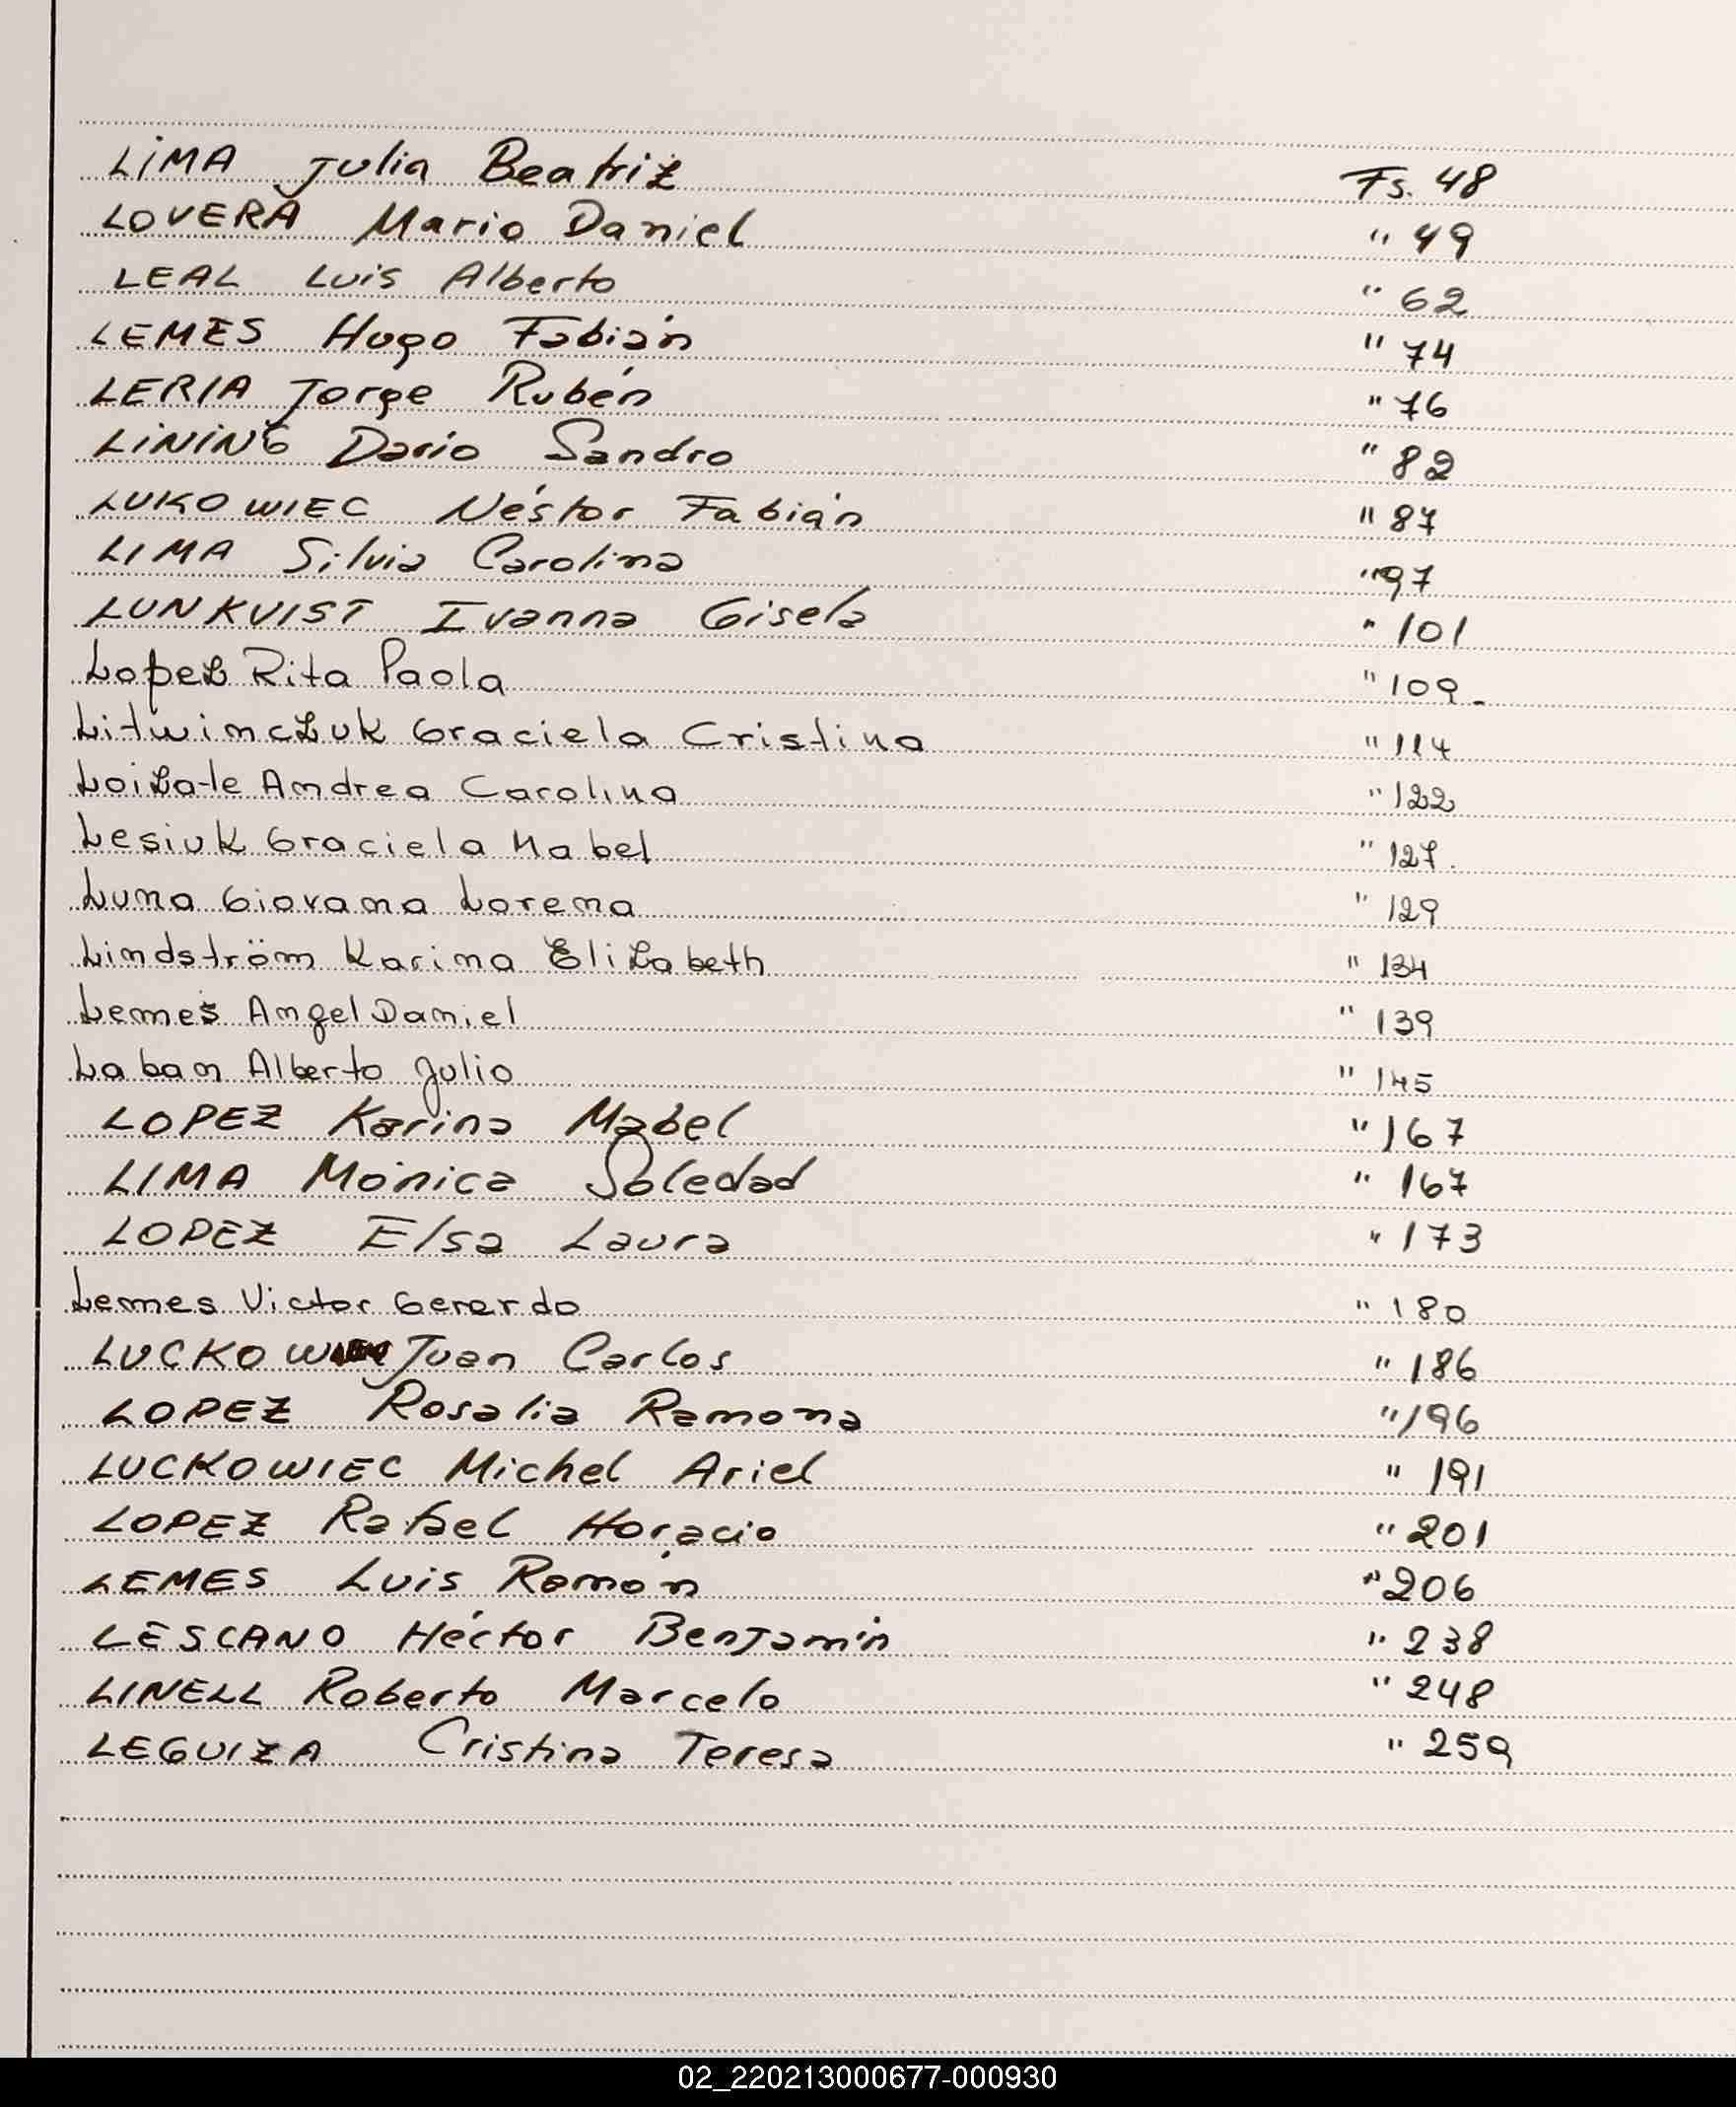 LIMA Julia Beatriz Fs. 48
LOVERA Mario Daniel " 49
LEAL Luis Alberto " 62
LEMES Hugo Fabián " 74
LERIA Jorge Rubén " 76
LINING Dario Sandro " 82
LUKOWIEC Néstor Fabián " 87
LIMA Silvia Carolina " 97
LUNKVIST Ivanna Gisela " 101
Lopez Rita Paola " 109.
Litwinczuk Graciela Cristina " 114
Loizate Andrea Carolina " 122
Lesiuk Graciela Mabel " 127.
Luna Giovana Lorena " 129
Lindström Karina Elizabeth " 134
Lemes Angel Daniel " 139
Laban Alberto Julio " 145
LOPEZ Karina Mabel " 167
LIMA Mónica Soledad " 167
LOPEZ Elsa Laura " 173
Lemes Victor Gerardo " 180
Juan Carlos " 186
LOPEZ Rosalia Ramona " 196
LUCKOWIEC Michel Ariel " 191
LOPEZ Rafael Horacio " 201
LEMES Luis Ramón " 206
LESCANO Héctor Benjamín " 238
LINELL Roberto Marcelo " 248
LEGUIZA Cristina Teresa " 259
02_220213000677-000930